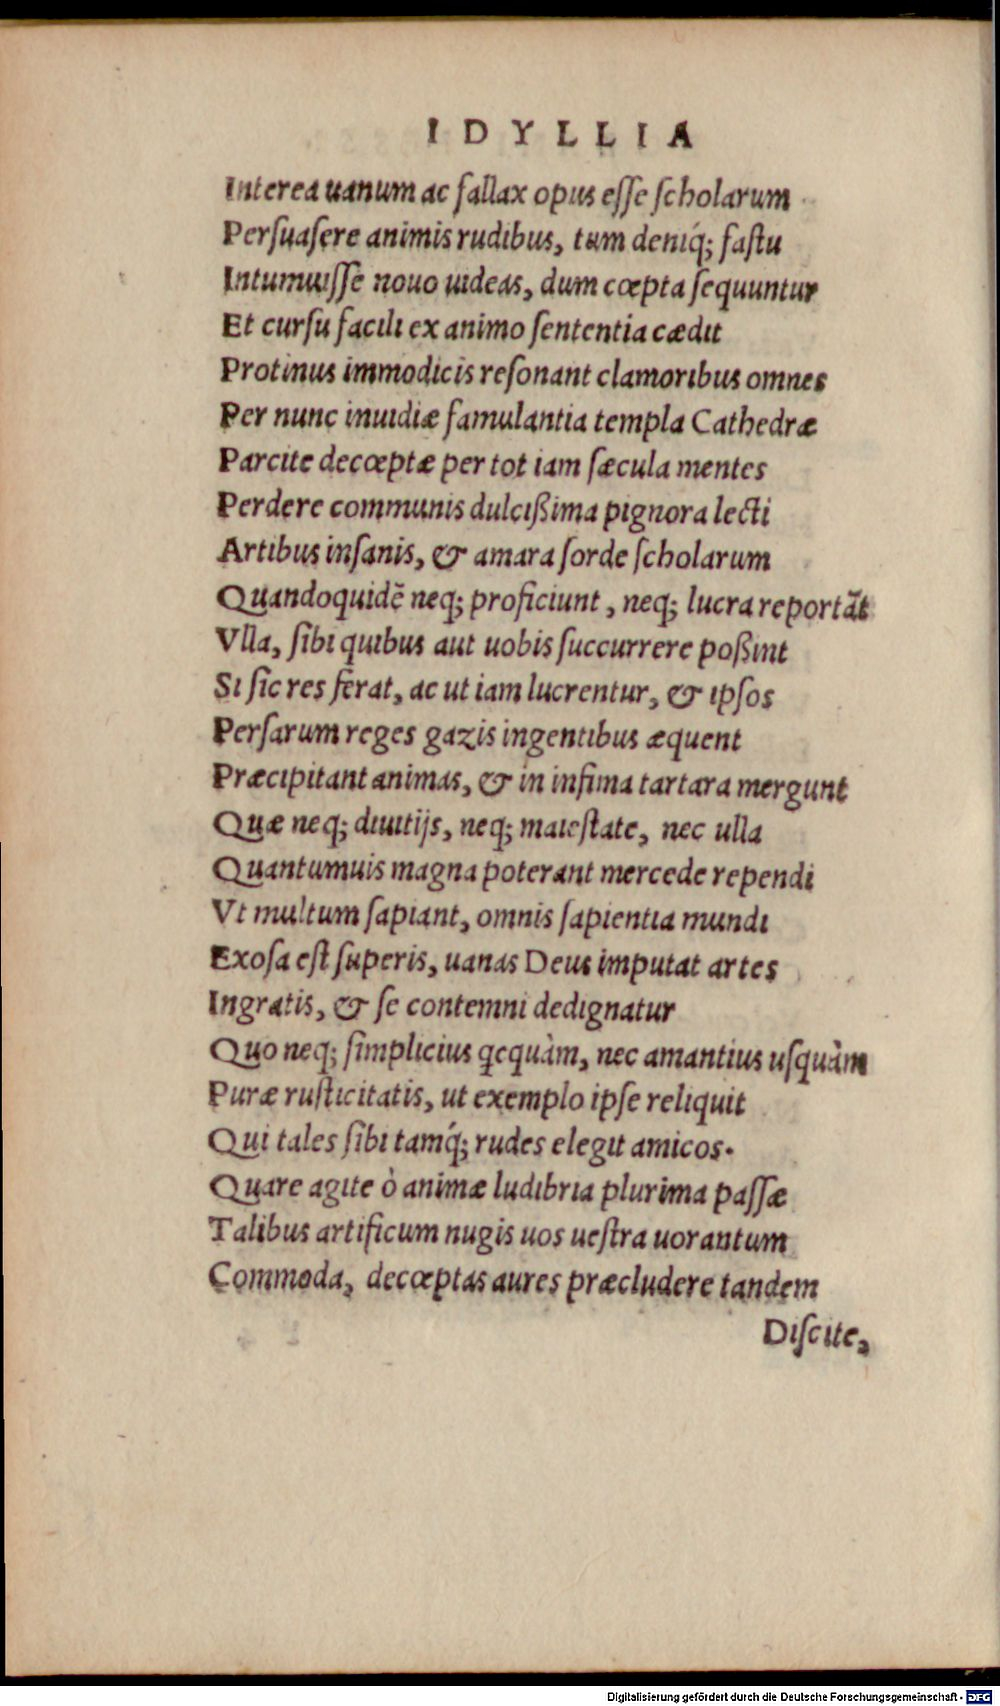 IDYLLIA
Interea uanum ac fallax opus eſſe ſcholarum
Perſuaſere animis rudibus, tum deniq́; faſtu
Intumuiſſe nouo uideas, dum cœpta ſequuntur
Et curſu facili ex animo ſententia cædit
Protinus immodicis reſonant clamoribus omnes
Per nunc inuidiæ famulantia templa Cathedræ
Parcite decœptæ per tot iam ſæcula mentes
Perdere communis dulcißima pignora lecti
Artibus inſanis, & amara ſorde ſcholarum
Quandoquidē neq; proficiunt, neq; lucra reportāt
Vlla, ſibi quibus aut uobis ſuccurrere poßint
Si ſic res ferat, ac ut iam lucrentur, & ipſos
Perſarum reges gazis ingentibus æquent
Præcipitant animas, & in infima tartara mergunt
Quæ neq; diuitijs, neq; maieſtate, nec ulla
Quantumuis magna poterant mercede rependi
Vt multum ſapiant, omnis ſapientia mundi
Exoſa eſt ſuperis, uanas Deus imputat artes
Ingratis, & ſe contemni dedignatur
Quo neq; ſimplicius qcquàm, nec amantius uſquàm
Puræ ruſticitatis, ut exemplo ipſe reliquit
Qui tales ſibi tamq́; rudes elegit amicos.
Quare agite ò animæ ludibria plurima paſſæ
Talibus artificum nugis uos ueſtra uorantum
Commoda, decœptas aures præcludere tandem
Diſcite,
Digitalisierung gefördert durch die Deutsche Forschungsgemeinschaft - DFG